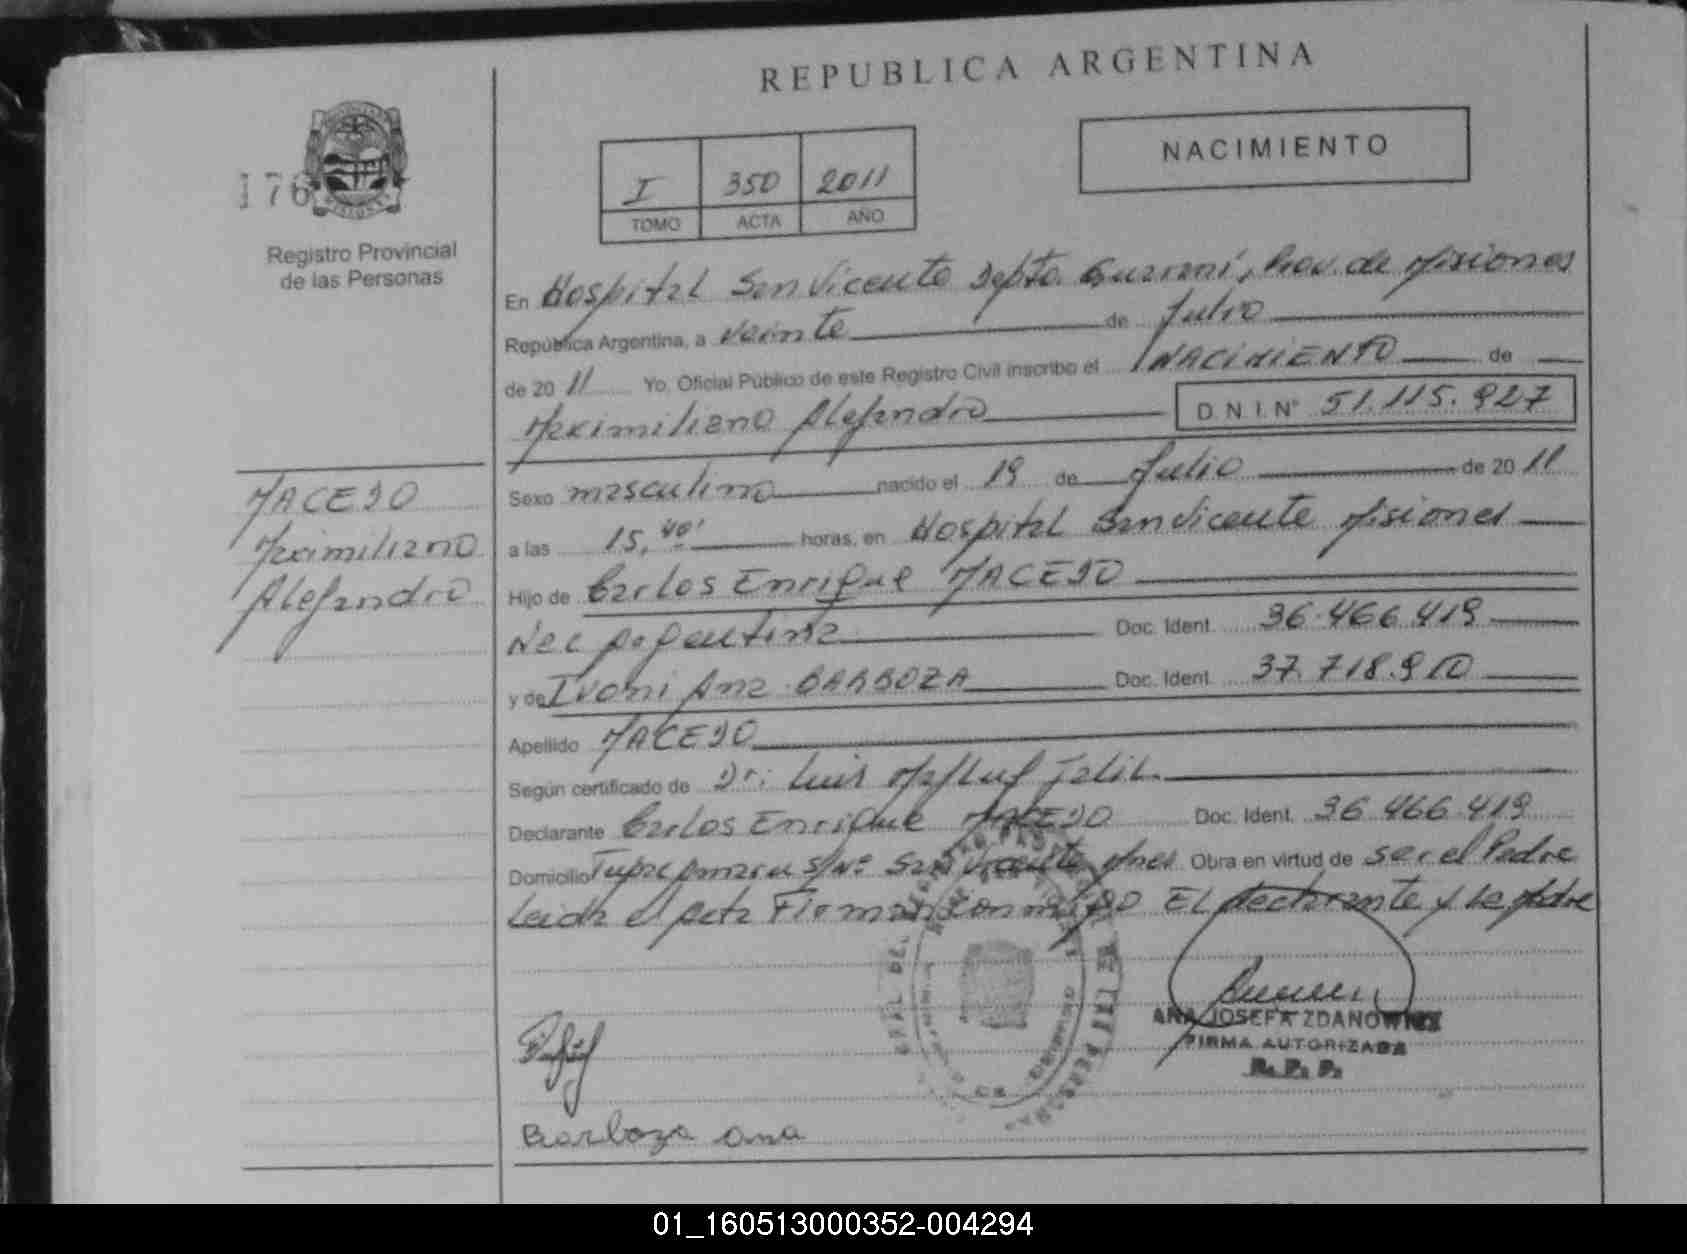 REPUBLICA ARGENTINA
NACIMIENTO
176
I 350 2011
TOMO ACTA AÑO
Registro Provincial
de las Personas
En Hospital San Vicente Depto. Guaraní, Prov. de Misiones
República Argentina, a Veinte de Julio
de 20 11 Yo, Oficial Público de este Registro Civil inscribo el NACIMIENTO de
Maximiliano Alejandro D.N.I.N° 51.115.927
MACEDO
Maximiliano
Alejandro
Sexo masculino nacido el 19 de Julio de 20 11
a las 15,40' horas, en Hospital San Vicente Misiones
Hijo de Carlos Enrique MACEDO
Nac Argentina Doc. Ident. 36.466.419
y de Ivoni Ana BARBOZA Doc. Ident. 37.718.910
Apellido MACEDO
Según certificado de Dr: Luis Jalil.
Declarante Carlos Enrique MACEDO Doc. Ident. 36.466.419
Domicilio Tupac Amaru S/N° San Vicente Mnes Obra en virtud de ser el Padre
Leida el Acta Firman conmigo El declarante y La Madre
ANA JOSEFA ZDANOWICZ
FIRMA AUTORIZADA
R. P. P.
Barboza Ana
01_160513000352-004294